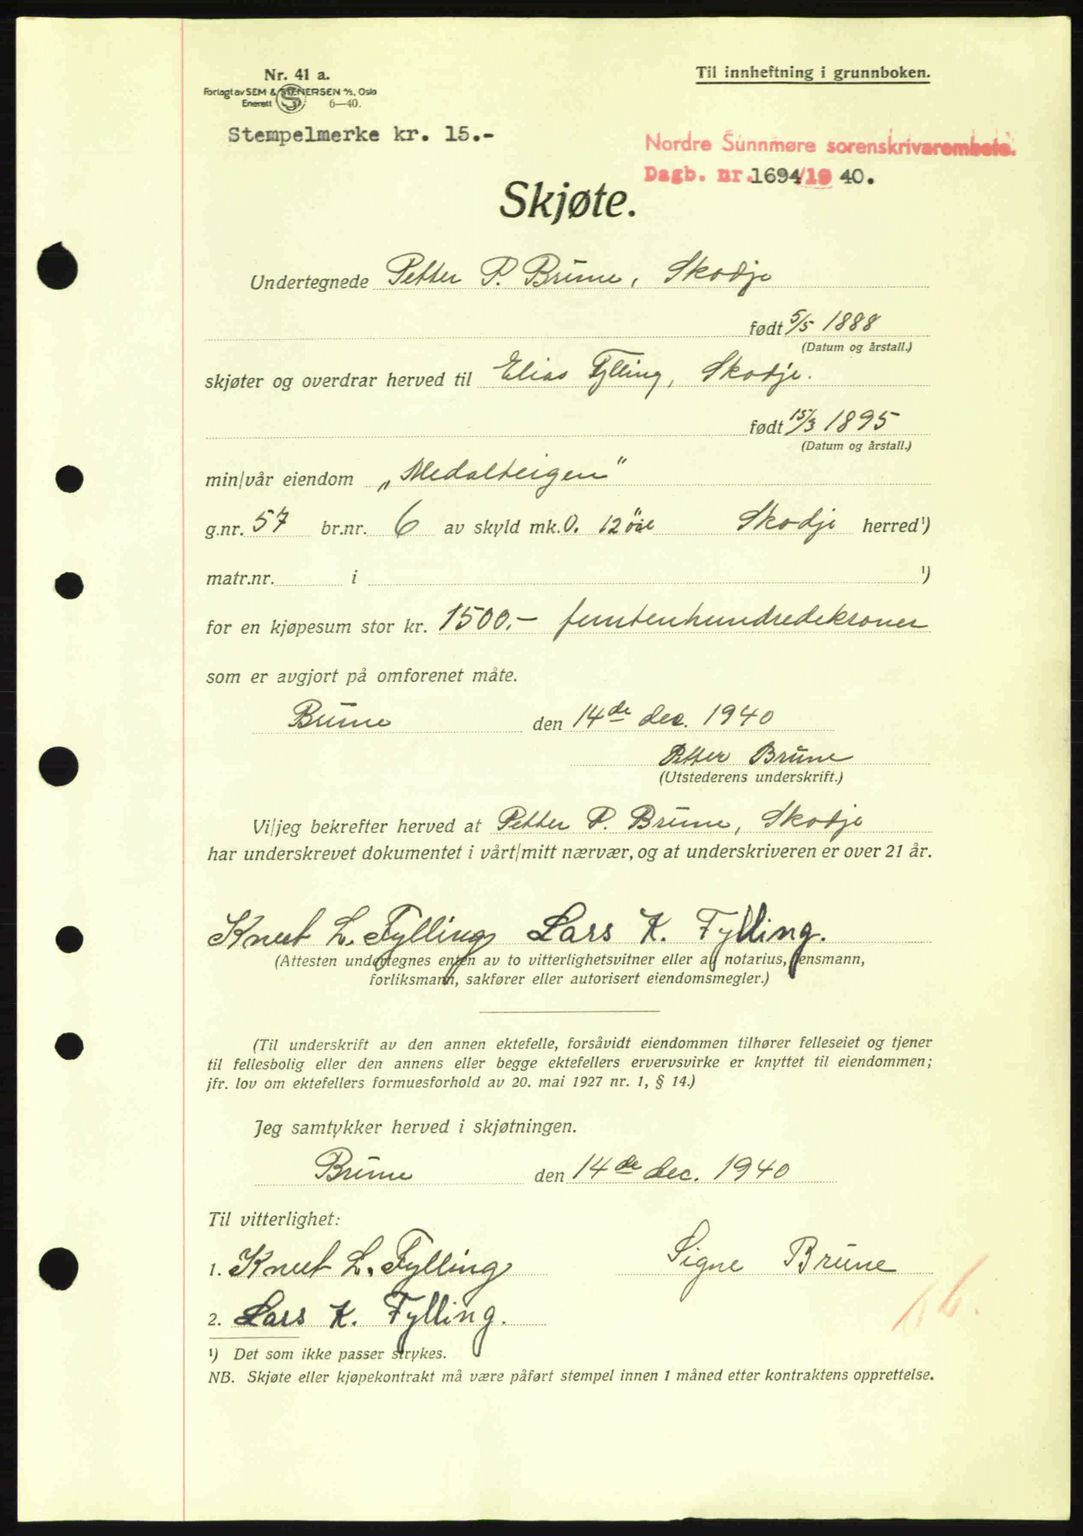 Nr. 41 a.
Til innheftning i grunnboken.
Forlagt av SEM & STENERSEN A/S, Oslo
Enerett S 6—40.
Stempelmerke kr. 15.-
Nordre Sunnmøre sorenskrivarembete.
Dagb. nr. 1694/19 40.
Skjøte.
Undertegnede Petter P. Brüne, Skodje
født 5/5 1888
(Datum og årstall.)
skjøter og overdrar herved til Elias Fylling, Skodje.
født 15/3 1895
(Datum og årstall.)
min/vår eiendom „Medalteigen"
g.nr. 57 br.nr. 6 av skyld mk. 0. 12 öre Skodje herred¹)
matr.nr. i ¹)
for en kjøpesum stor kr. 1500.- femtenhundredekroner
som er avgjort på omforenet måte.
Brüne den 14de dec. 1940
Petter Brüne
(Utstederens underskrift.)
Vi/jeg bekrefter herved at Petter P. Brüne, Skodje
har underskrevet dokumentet i vårt/mitt nærvær, og at underskriveren er over 21 år.
Knut L. Fylling Lars K. Fylling.
(Attesten undertegnes enten av to vitterlighetsvitner eller av notarius, lensmann,
forliksmann, sakfører eller autorisert eiendomsmegler.)
(Til underskrift av den annen ektefelle, forsåvidt eiendommen tilhører felleseiet og tjener
til fellesbolig eller den annens eller begge ektefellers ervervsvirke er knyttet til eiendommen;
jfr. lov om ektefellers formuesforhold av 20. mai 1927 nr. 1, § 14.)
Jeg samtykker herved i skjøtningen.
Brüne den 14de dec. 1940
Til vitterlighet:
1. Knut L. Fylling Signe Brüne
2. Lars K. Fylling.
¹) Det som ikke passer strykes.
NB. Skjøte eller kjøpekontrakt må være påført stempel innen 1 måned etter kontraktens opprettelse.